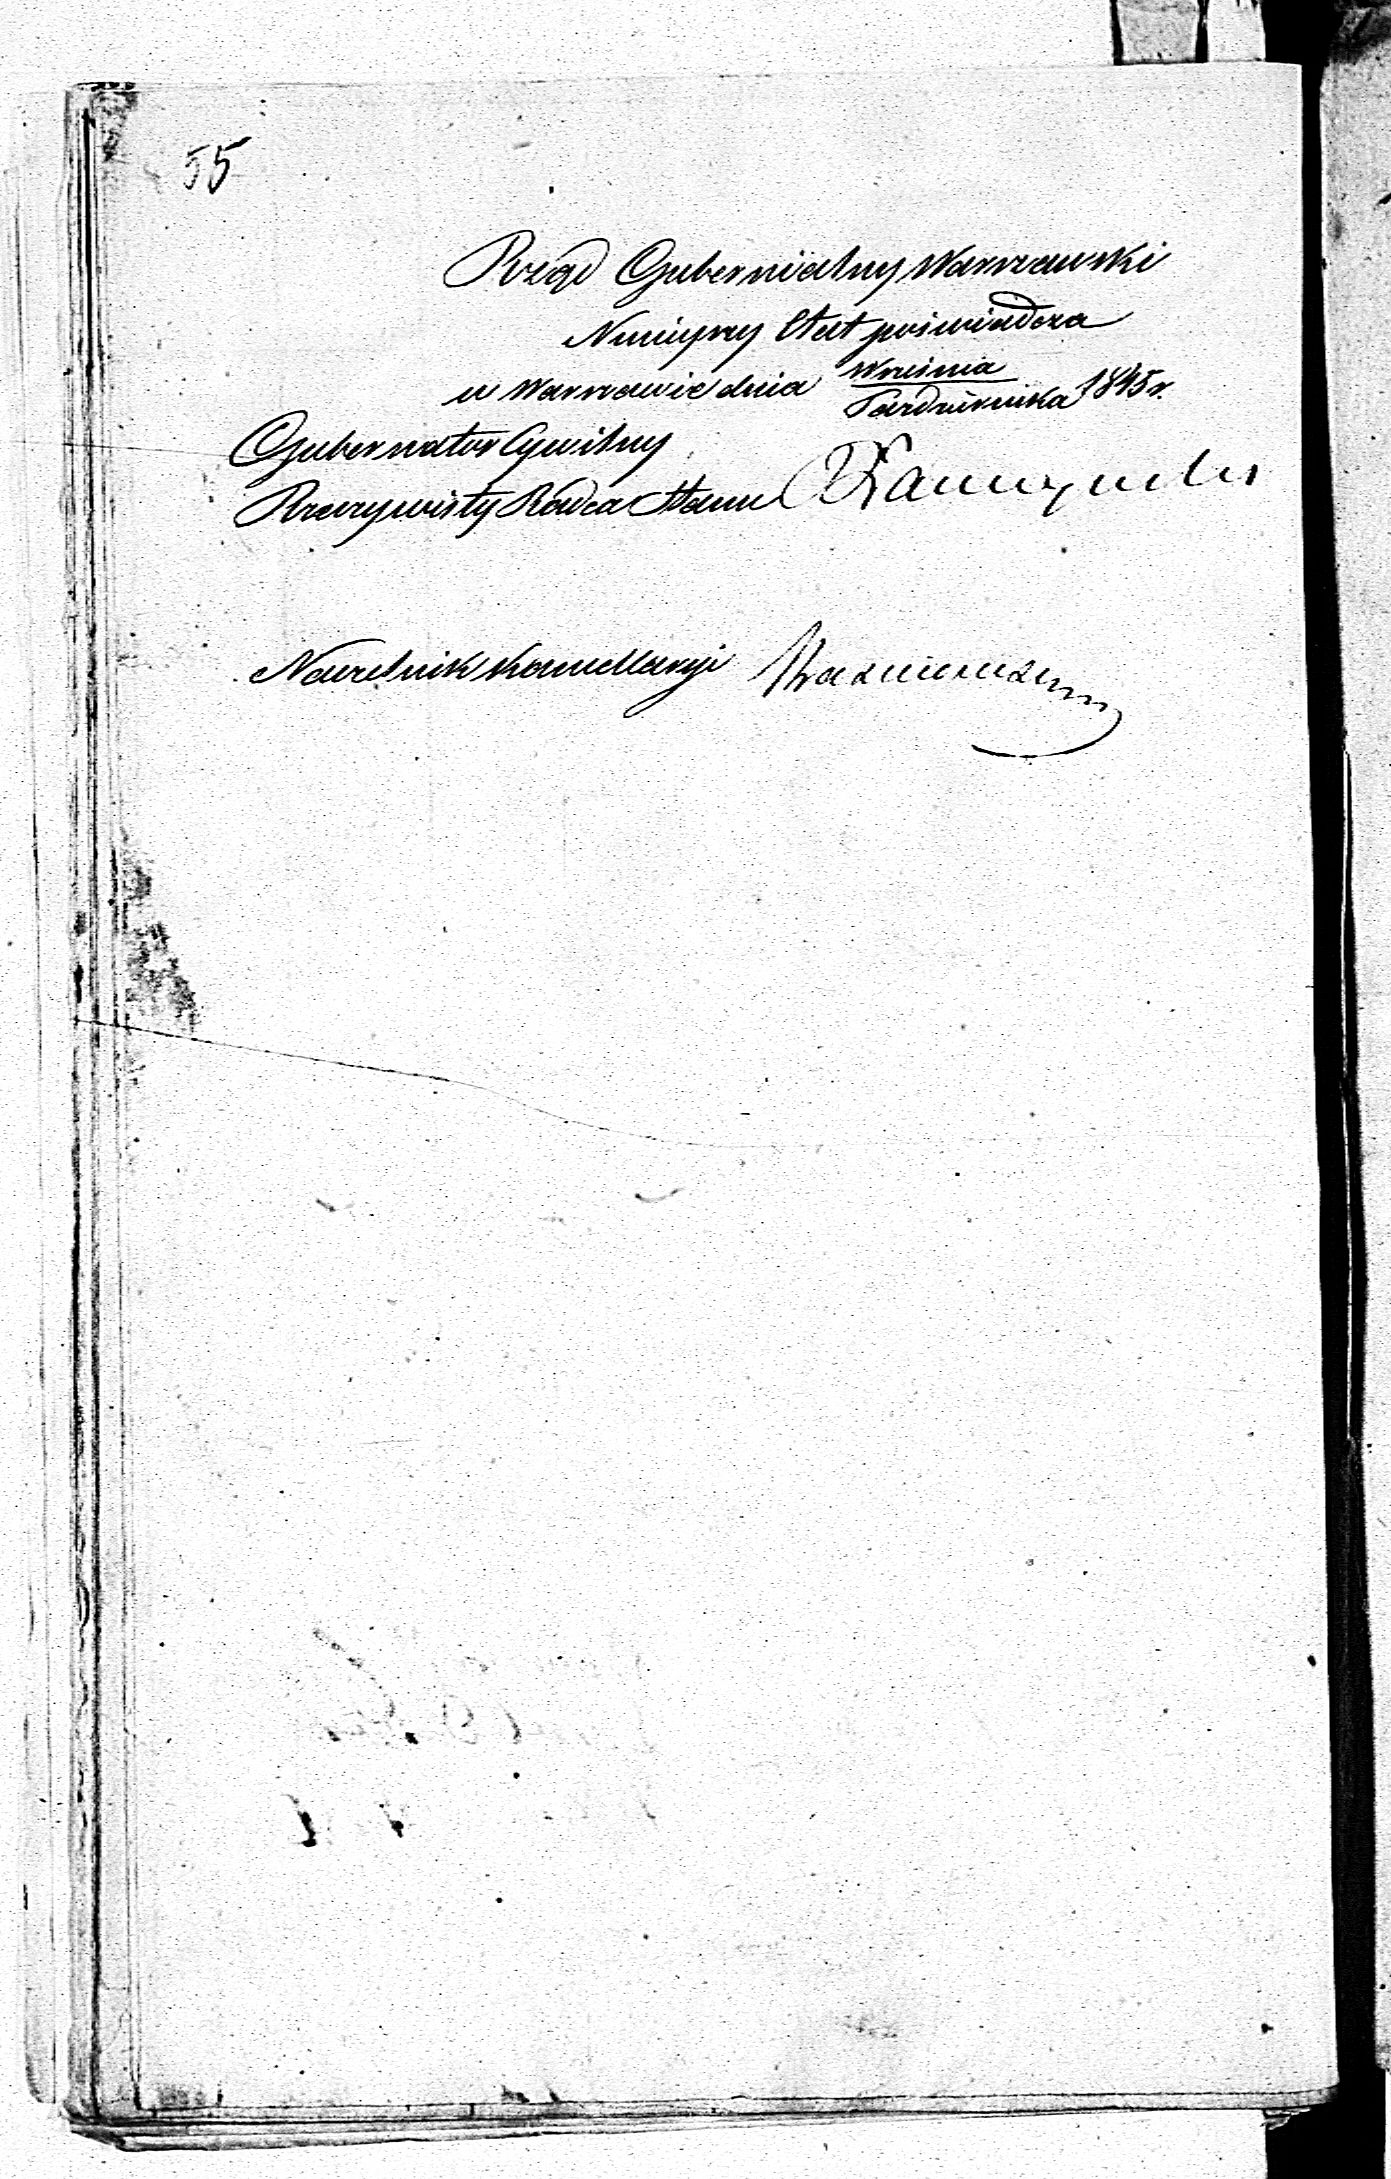 55
Rząd Gubernialny Warszawski
Niniejszy Etat poświadcza
w Warszawie dnia Września / Października 1845 r.
Gubernator Cywilny
Rzeczywisty Radca Stanu
Naczelnik Kancellaryi